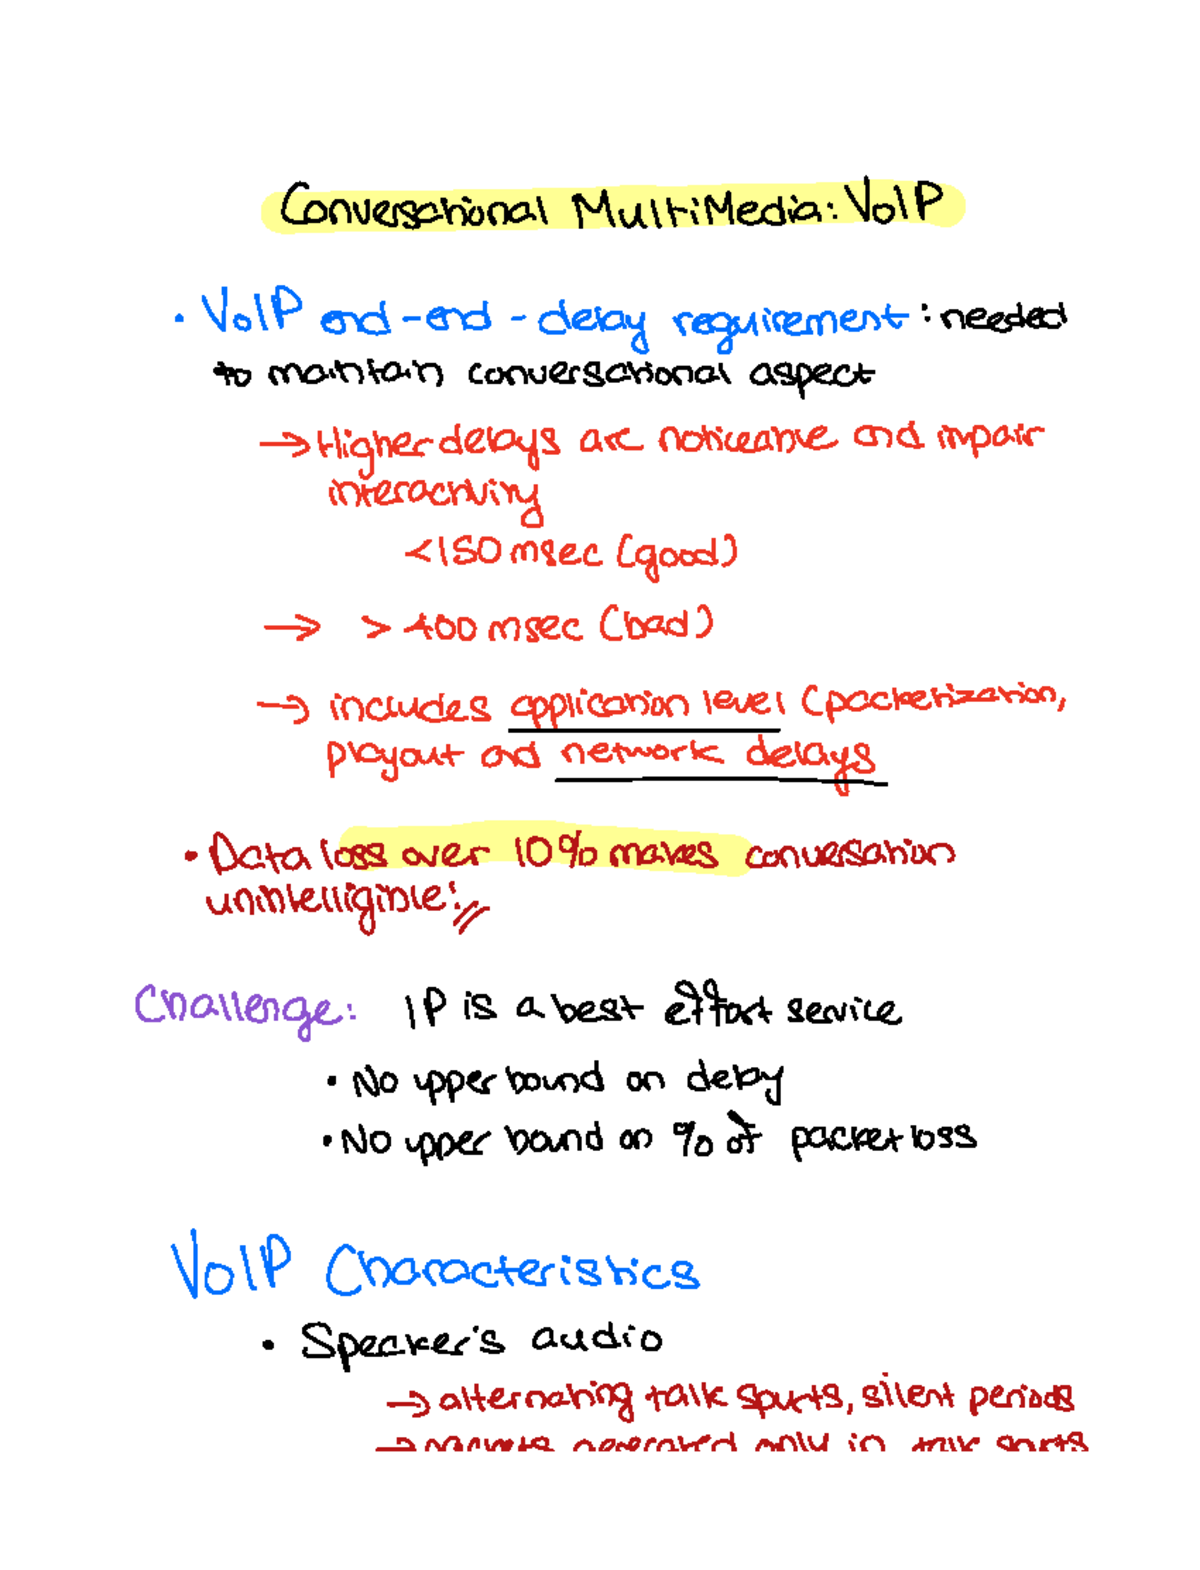 Conversational MultiMedia: VoIP
• VoIP end-end-delay requirement: needed
to maintain conversational aspect
→ Higher delays are noticeable and impair
interactivity
<150 msec (good)
→ > 400 msec (bad)
→ includes application level (packetization,
playout and network delays
• Data loss over 10% makes conversation
unintelligible!
Challenge: IP is a best effort service
• No upper bound on delay
• No upper bound on % of packet loss
VoIP Characteristics
• Speaker's audio
→ alternating talk spurts, silent periods
→ packets generated only in talk spurts